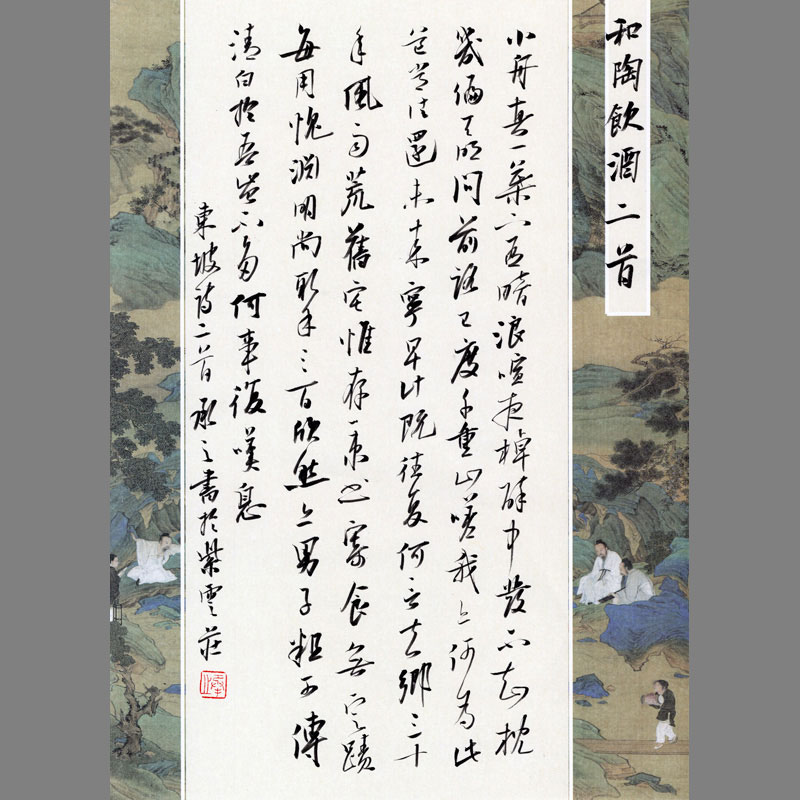 和陶飲酒二首
小舟真一葉下有暗浪喧夜棹醉中發不知枕
幾偏天明問前路已度千重山嗟我亦何為此
道常往還未來寧早計既往復何言去鄉三十
年風雨荒舊宅惟存一束書寄食無定蹟
每用愧淵明尚取禾三百頎然六男子粗可傳
清白於吾豈不多何事復嘆息
東坡詩二首承之書於紫雲莊